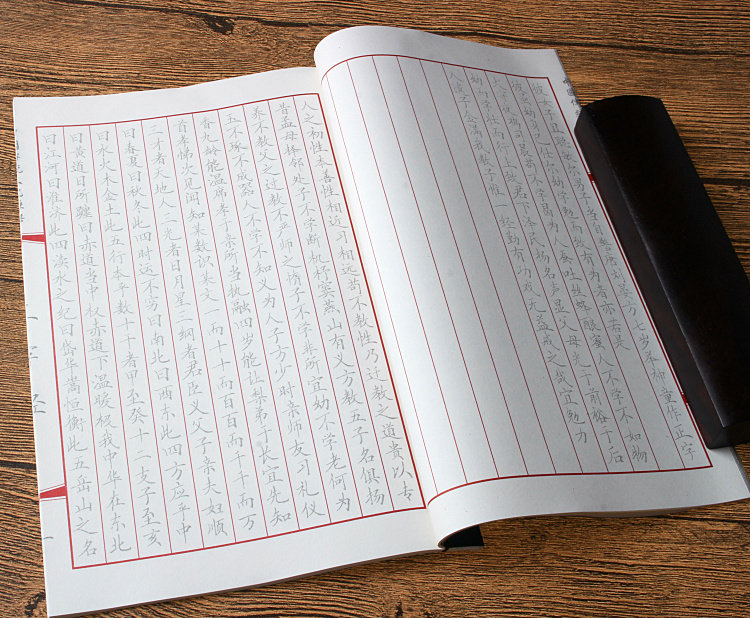 彼女子且聪敏尔男子当自警唐刘晏方七岁举神童作正字
彼虽幼身已仕尔幼学勉而致有为者亦若是
犬守夜鸡司晨苟不学曷为人蚕吐丝蜂酿蜜人不学不如物
幼而学壮而行上致君下泽民扬名声显父母光于前裕于后
人遗子金满籯我教子惟一经勤有功戏无益戒之哉宜勉力
人之初性本善性相近习相远苟不教性乃迁教之道贵以专
昔孟母择邻处子不学断机杼窦燕山有义方教五子名俱扬
养不教父之过教不严师之惰子不学非所宜幼不学老何为
玉不琢不成器人不学不知义为人子方少时亲师友习礼仪
香九龄能温席孝于亲所当执融四岁能让梨弟于长宜先知
首孝悌次见闻知某数识某文一而十十而百百而千千而万
三才者天地人三光者日月星三纲者君臣义父子亲夫妇顺
曰春夏曰秋冬此四时运不穷曰南北曰西东此四方应乎中
曰水火木金土此五行本乎数十干者甲至癸十二支子至亥
曰黄道日所躔曰赤道当中权赤道下温暖极我中华在东北
曰江河曰淮济此四渎水之纪曰岱华嵩恒衡此五岳山之名